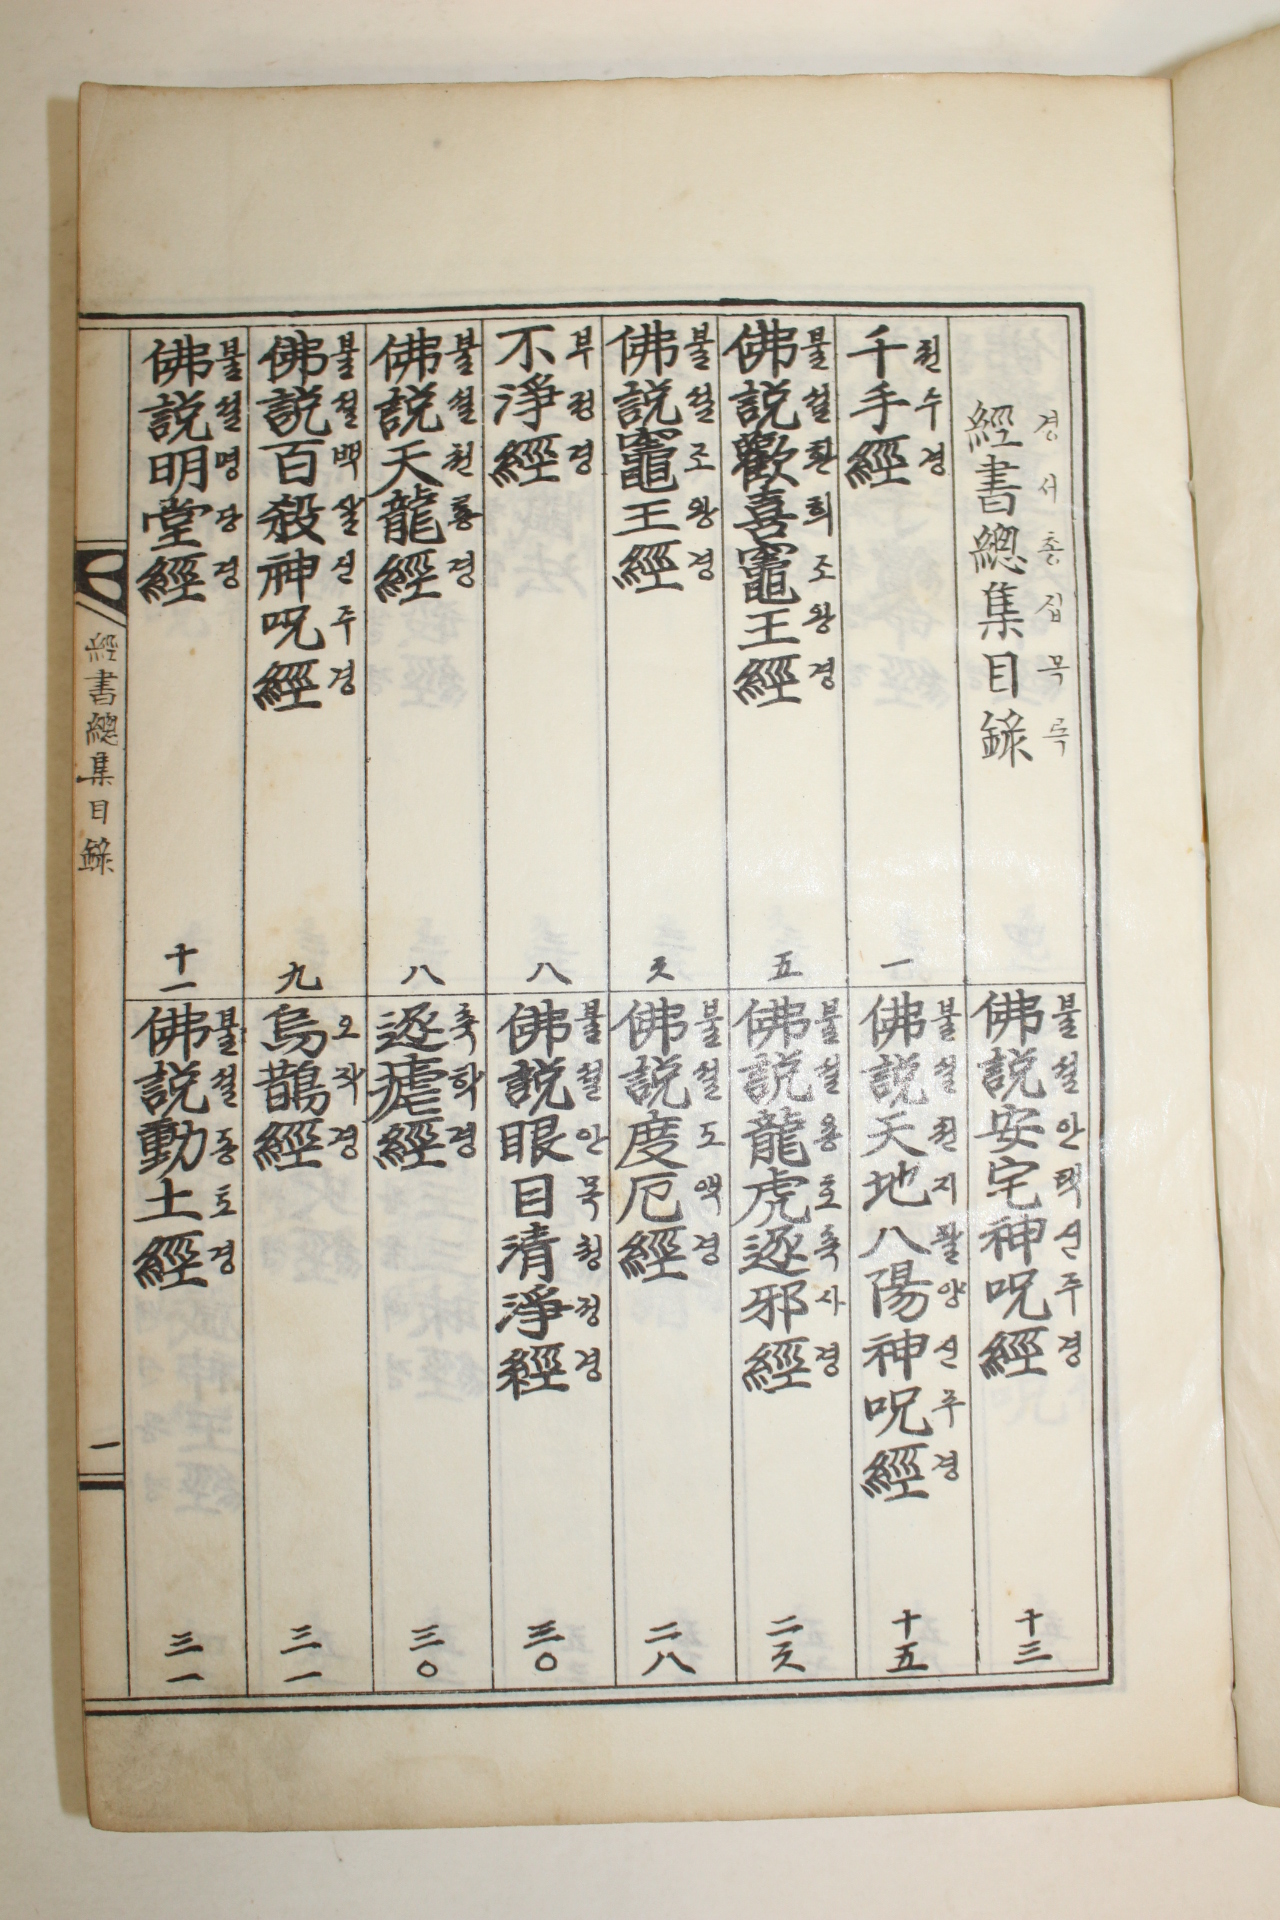 경서총집목록
經書總集目錄
천수경
千手經 一
불설환희조왕경
佛説歡喜竈王經 五
불설조왕경
佛説竈王經 六
부정경
不淨經 八
불설천룡경
佛説天龍經 八
불설백살신주경
佛説百殺神呪經 九
불설명당경
佛説明堂經 十一
불설안택신주경
佛説安宅神呪經 十三
불설천지팔양신주경
佛説天地八陽神呪經 十五
불설용호축사경
佛説龍虎逐邪經 二六
불설도액경
佛説度厄經 二八
불설안목청정경
佛説眼目清淨經 三〇
축학경
逐瘧經 三〇
오작경
烏鵲經 三一
불설동토경
佛説動土經 三一
經書總集目錄 一